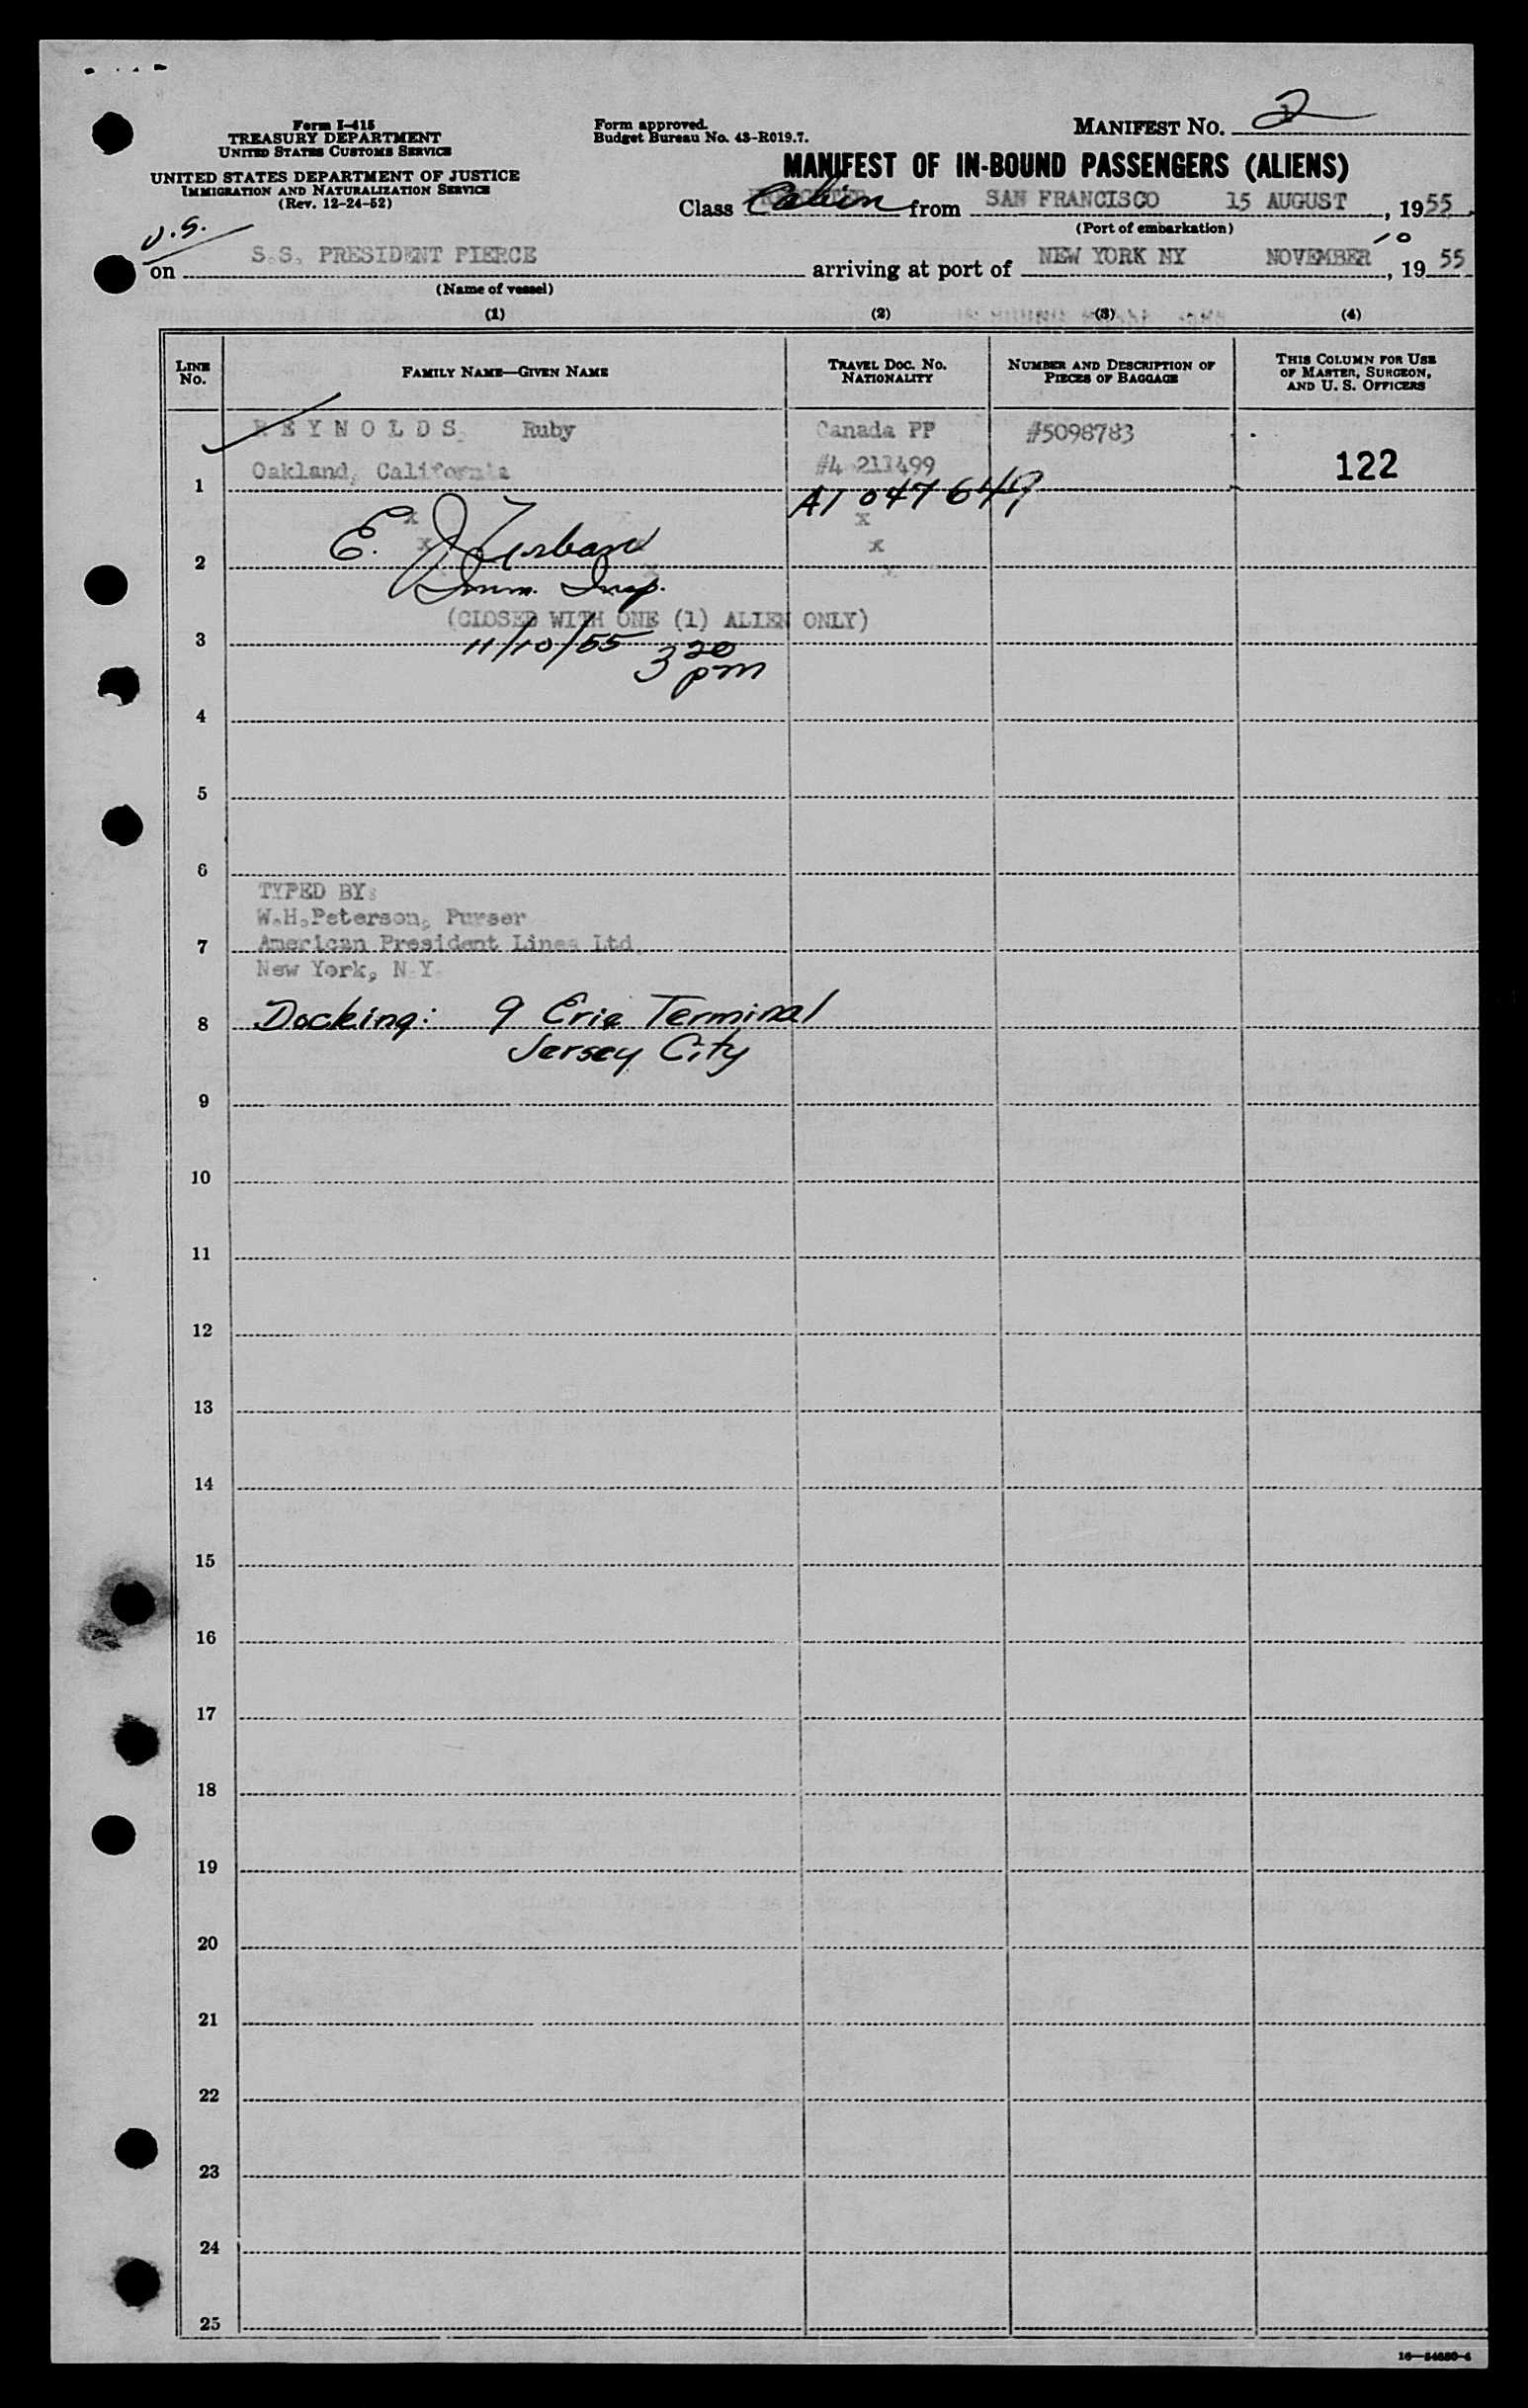 Form I-415
TREASURY DEPARTMENT
UNITED STATES CUSTOMS SERVICE
UNITED STATES DEPARTMENT OF JUSTICE
IMMIGRATION AND NATURALIZATION SERVICE
(Rev. 12-24-52)
Form approved.
Budget Bureau No. 43-R019.7.
MANIFEST NO. 2
MANIFEST OF IN-BOUND PASSENGERS (ALIENS)
Class Cabin from SAN FRANCISCO 15 AUGUST, 1955
(Port of embarkation)
U.S.
on S.S. PRESIDENT PIERCE arriving at port of NEW YORK NY NOVEMBER 10, 1955
(Name of vessel)
(1) (2) (3) (4)
LINE NO. FAMILY NAME—GIVEN NAME TRAVEL DOC. NO. NATIONALITY NUMBER AND DESCRIPTION OF PIECES OF BAGGAGE THIS COLUMN FOR USE OF MASTER, SURGEON, AND U. S. OFFICERS
REYNOLDS, Ruby Canada PP #5098783
1 Oakland, California #4 211499 122
A1 047 649
x x
x x x
2 E. J. Urban
Imm. Insp.
(CLOSED WITH ONE (1) ALIEN ONLY)
3 11/10/55 3 20 pm
4
5
6
TYPED BY:
W.H.Peterson, Purser
7 American President Lines Ltd
New York, N.Y.
8 Docking: 9 Erie Terminal
Jersey City
9
10
11
12
13
14
15
16
17
18
19
20
21
22
23
24
25